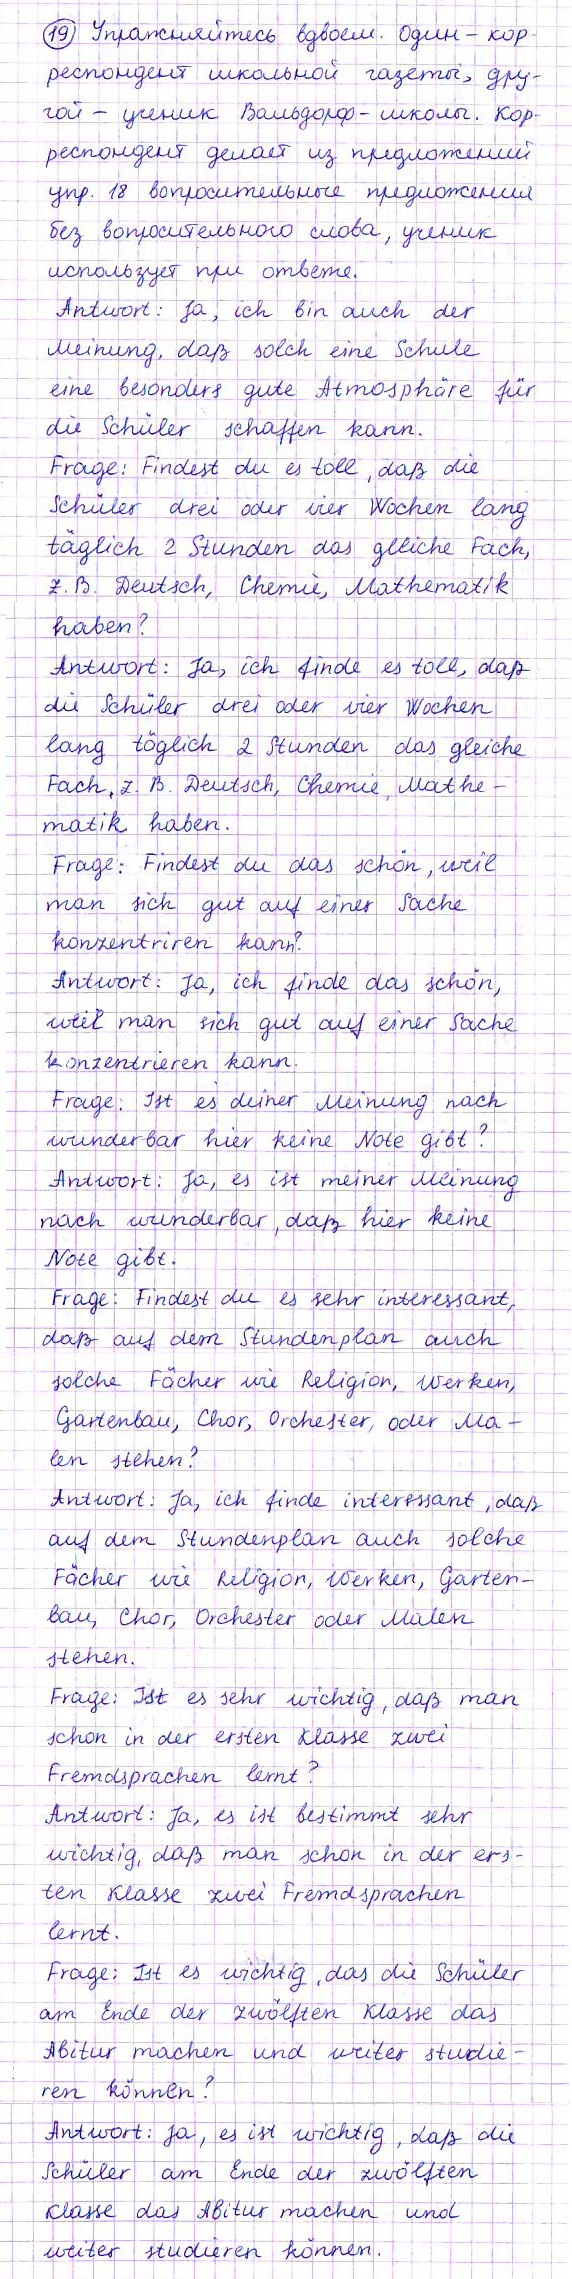 19 Упражняйтесь вдвоем. Один – кор-
респондент школьной газеты, дру-
гой – ученик Вальдорф-школы. Кор-
респондент делает из предложений
упр. 18 вопросительные предложения
без вопросительного слова, ученик
использует при ответе.
Antwort: Ja, ich bin auch der
Meinung, daß solch eine Schule
eine besonders gute Atmosphäre für
die Schüler schaffen kann.
Frage: Findest du es toll, daß die
Schüler drei oder vier Wochen lang
täglich 2 Stunden das gleiche Fach,
z.B. Deutsch, Chemie, Mathematik
haben?
Antwort: Ja, ich finde es toll, daß
die Schüler drei oder vier Wochen
lang täglich 2 Stunden das gleiche
Fach, z. B. Deutsch, Chemie, Mathe-
matik haben.
Frage: Findest du das schön, weil
man sich gut auf einer Sache
konzentriren kann?
Antwort: Ja, ich finde das schön,
weil man sich gut auf einer Sache
konzentrieren kann.
Frage: Ist es deiner Meinung nach
wunderbar hier keine Note gibt?
Antwort: Ja, es ist meiner Meinung
nach wunderbar, daß hier keine
Note gibt.
Frage: Findest du es sehr interessant,
daß auf dem Stundenplan auch
solche Fächer wie Religion, Werken,
Gartenbau, Chor, Orchester, oder Ma-
len stehen?
Antwort: Ja, ich finde interessant, daß
auf dem Stundenplan auch solche
Fächer wie Religion, Werken, Garten-
bau, Chor, Orchester oder Malen
stehen.
Frage: Ist es sehr wichtig, daß man
schon in der ersten Klasse zwei
Fremdsprachen lernt?
Antwort: Ja, es ist bestimmt sehr
wichtig, daß man schon in der ers-
ten Klasse zwei Fremdsprachen
lernt.
Frage: Ist es wichtig, das die Schüler
am Ende der zwölften Klasse das
Abitur machen und weiter studie-
ren können?
Antwort: Ja, es ist wichtig, daß die
Schüler am Ende der zwölften
Klasse das Abitur machen und
weiter studieren können.